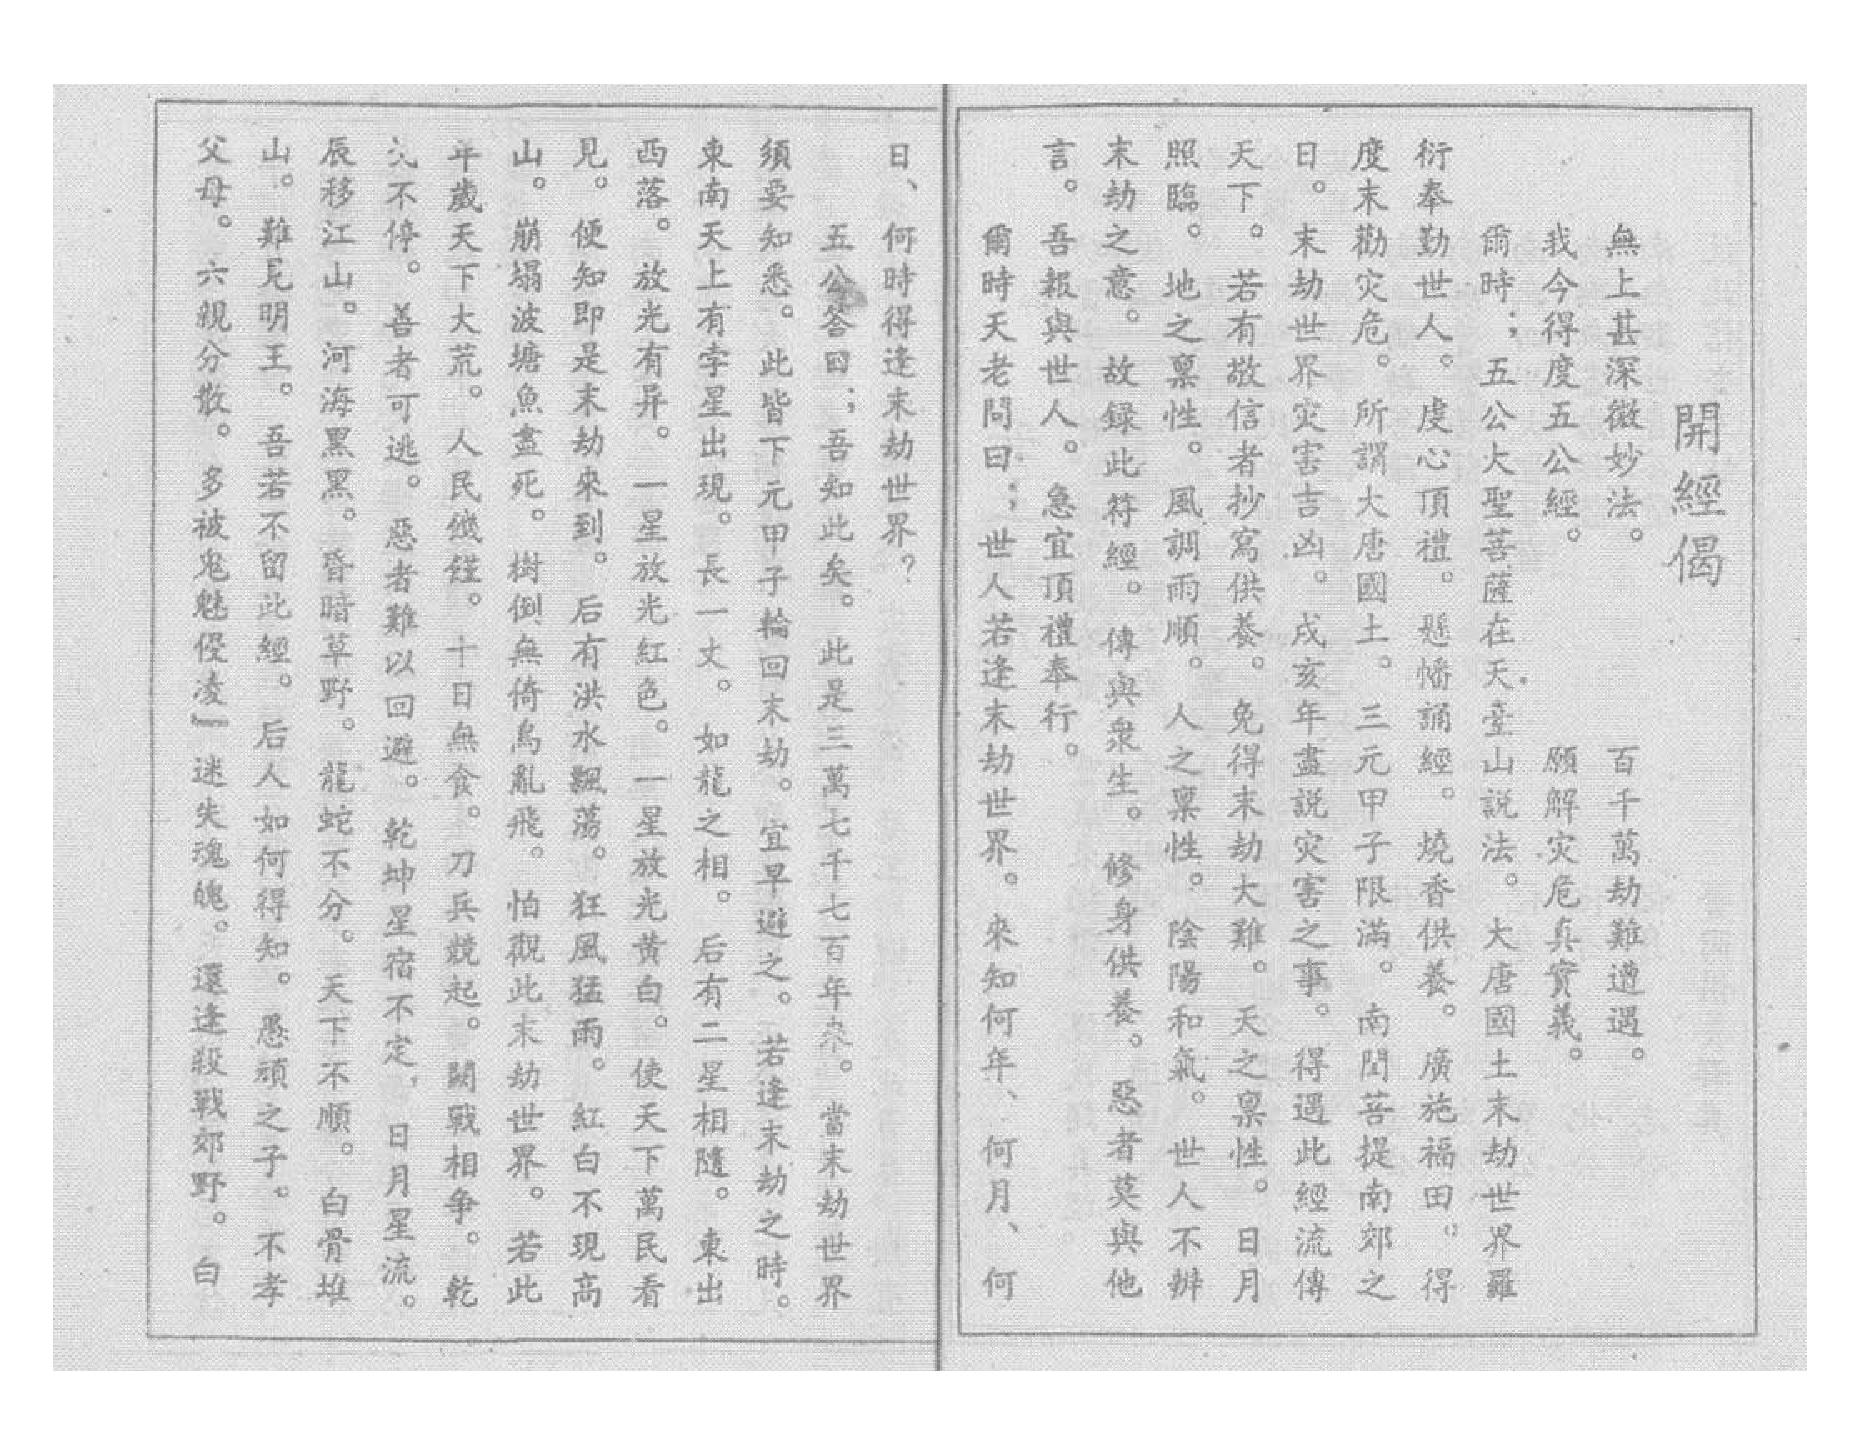 開經偈
無上甚深微妙法。百千萬劫難遭遇。
我今得度五公經。願解灾危真實義。
爾時；五公大聖菩薩在天臺山説法。大唐國土末劫世界羅
衍奉勤世人。虔心頂禮。懸幡誦經。燒香供養。廣施福田。得
度末勸灾危。所謂大唐國土。三元甲子限滿。南閻菩提南郊之
日。末劫世界灾害吉凶。戌亥年盡説灾害之事。得遇此經流傳
天下。若有敬信者抄寫供養。免得末劫大難。天之稟性。日月
照臨。地之稟性。風調雨順。人之稟性。陰陽和氣。世人不辦
末劫之意。故録此符經。傳與衆生。修身供養。惡者莫與他
言。吾報與世人。急宜頂禮奉行。
爾時天老問曰；世人若逢末劫世界。來知何年、何月、何
日、何時得逢末劫世界？
五公答曰；吾知此矣。此是三萬七千七百年來。當末劫世界
須要知悉。此皆下元甲子輪回末劫。宜早避之。若逢末劫之時。
東南天上有孛星出現。長一丈。如龍之相。后有二星相隨。東出
西落。放光有异。一星放光紅色。一星放光黄白。使天下萬民看
見。便知即是末劫來到。后有洪水飄蕩。狂風猛雨。紅白不現高
山。崩塌波塘魚盡死。樹倒無倚鳥亂飛。怕觀此末劫世界。若此
年歲天下大荒。人民饑饉。十日無食。刀兵競起。鬭戰相争。乾
不停。善者可逃。惡者難以回避。乾坤星宿不定，日月星流。
辰移江山。河海黑黑。昏暗草野。龍蛇不分。天下不順。白骨堆
山。難見明王。吾若不留此經。后人如何得知。愚頑之子。不孝
父母。六親分散。多被鬼魅侵凌』迷失魂魄。還逢殺戰郊野。白